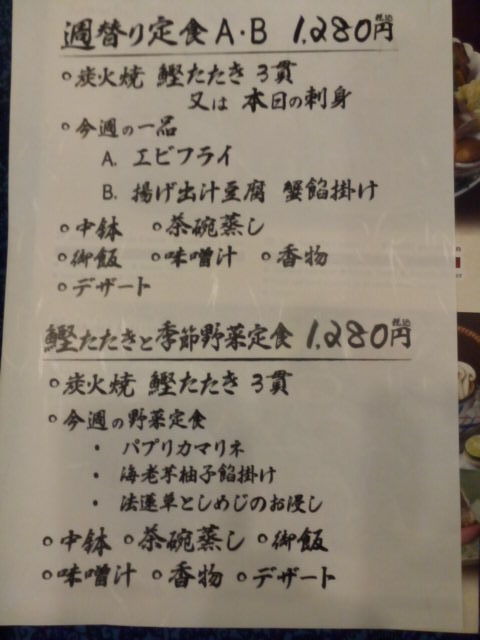 週替り定食 A・B 1,280円 税込
○炭火焼 鰹たたき 3貫
又は 本日の刺身
○今週の一品
A. エビフライ
B. 揚げ出汁豆腐 蟹餡掛け
○中鉢 ○茶碗蒸し
○御飯 ○味噌汁 ○香物
○デザート
鰹たたきと季節野菜定食 1,280円 税込
○炭火焼 鰹たたき 3貫
○今週の野菜定食
・パプリカマリネ
・海老芋柚子餡掛け
・法蓮草としめじのお浸し
○中鉢 ○茶碗蒸し ○御飯
○味噌汁 ○香物 ○デザート